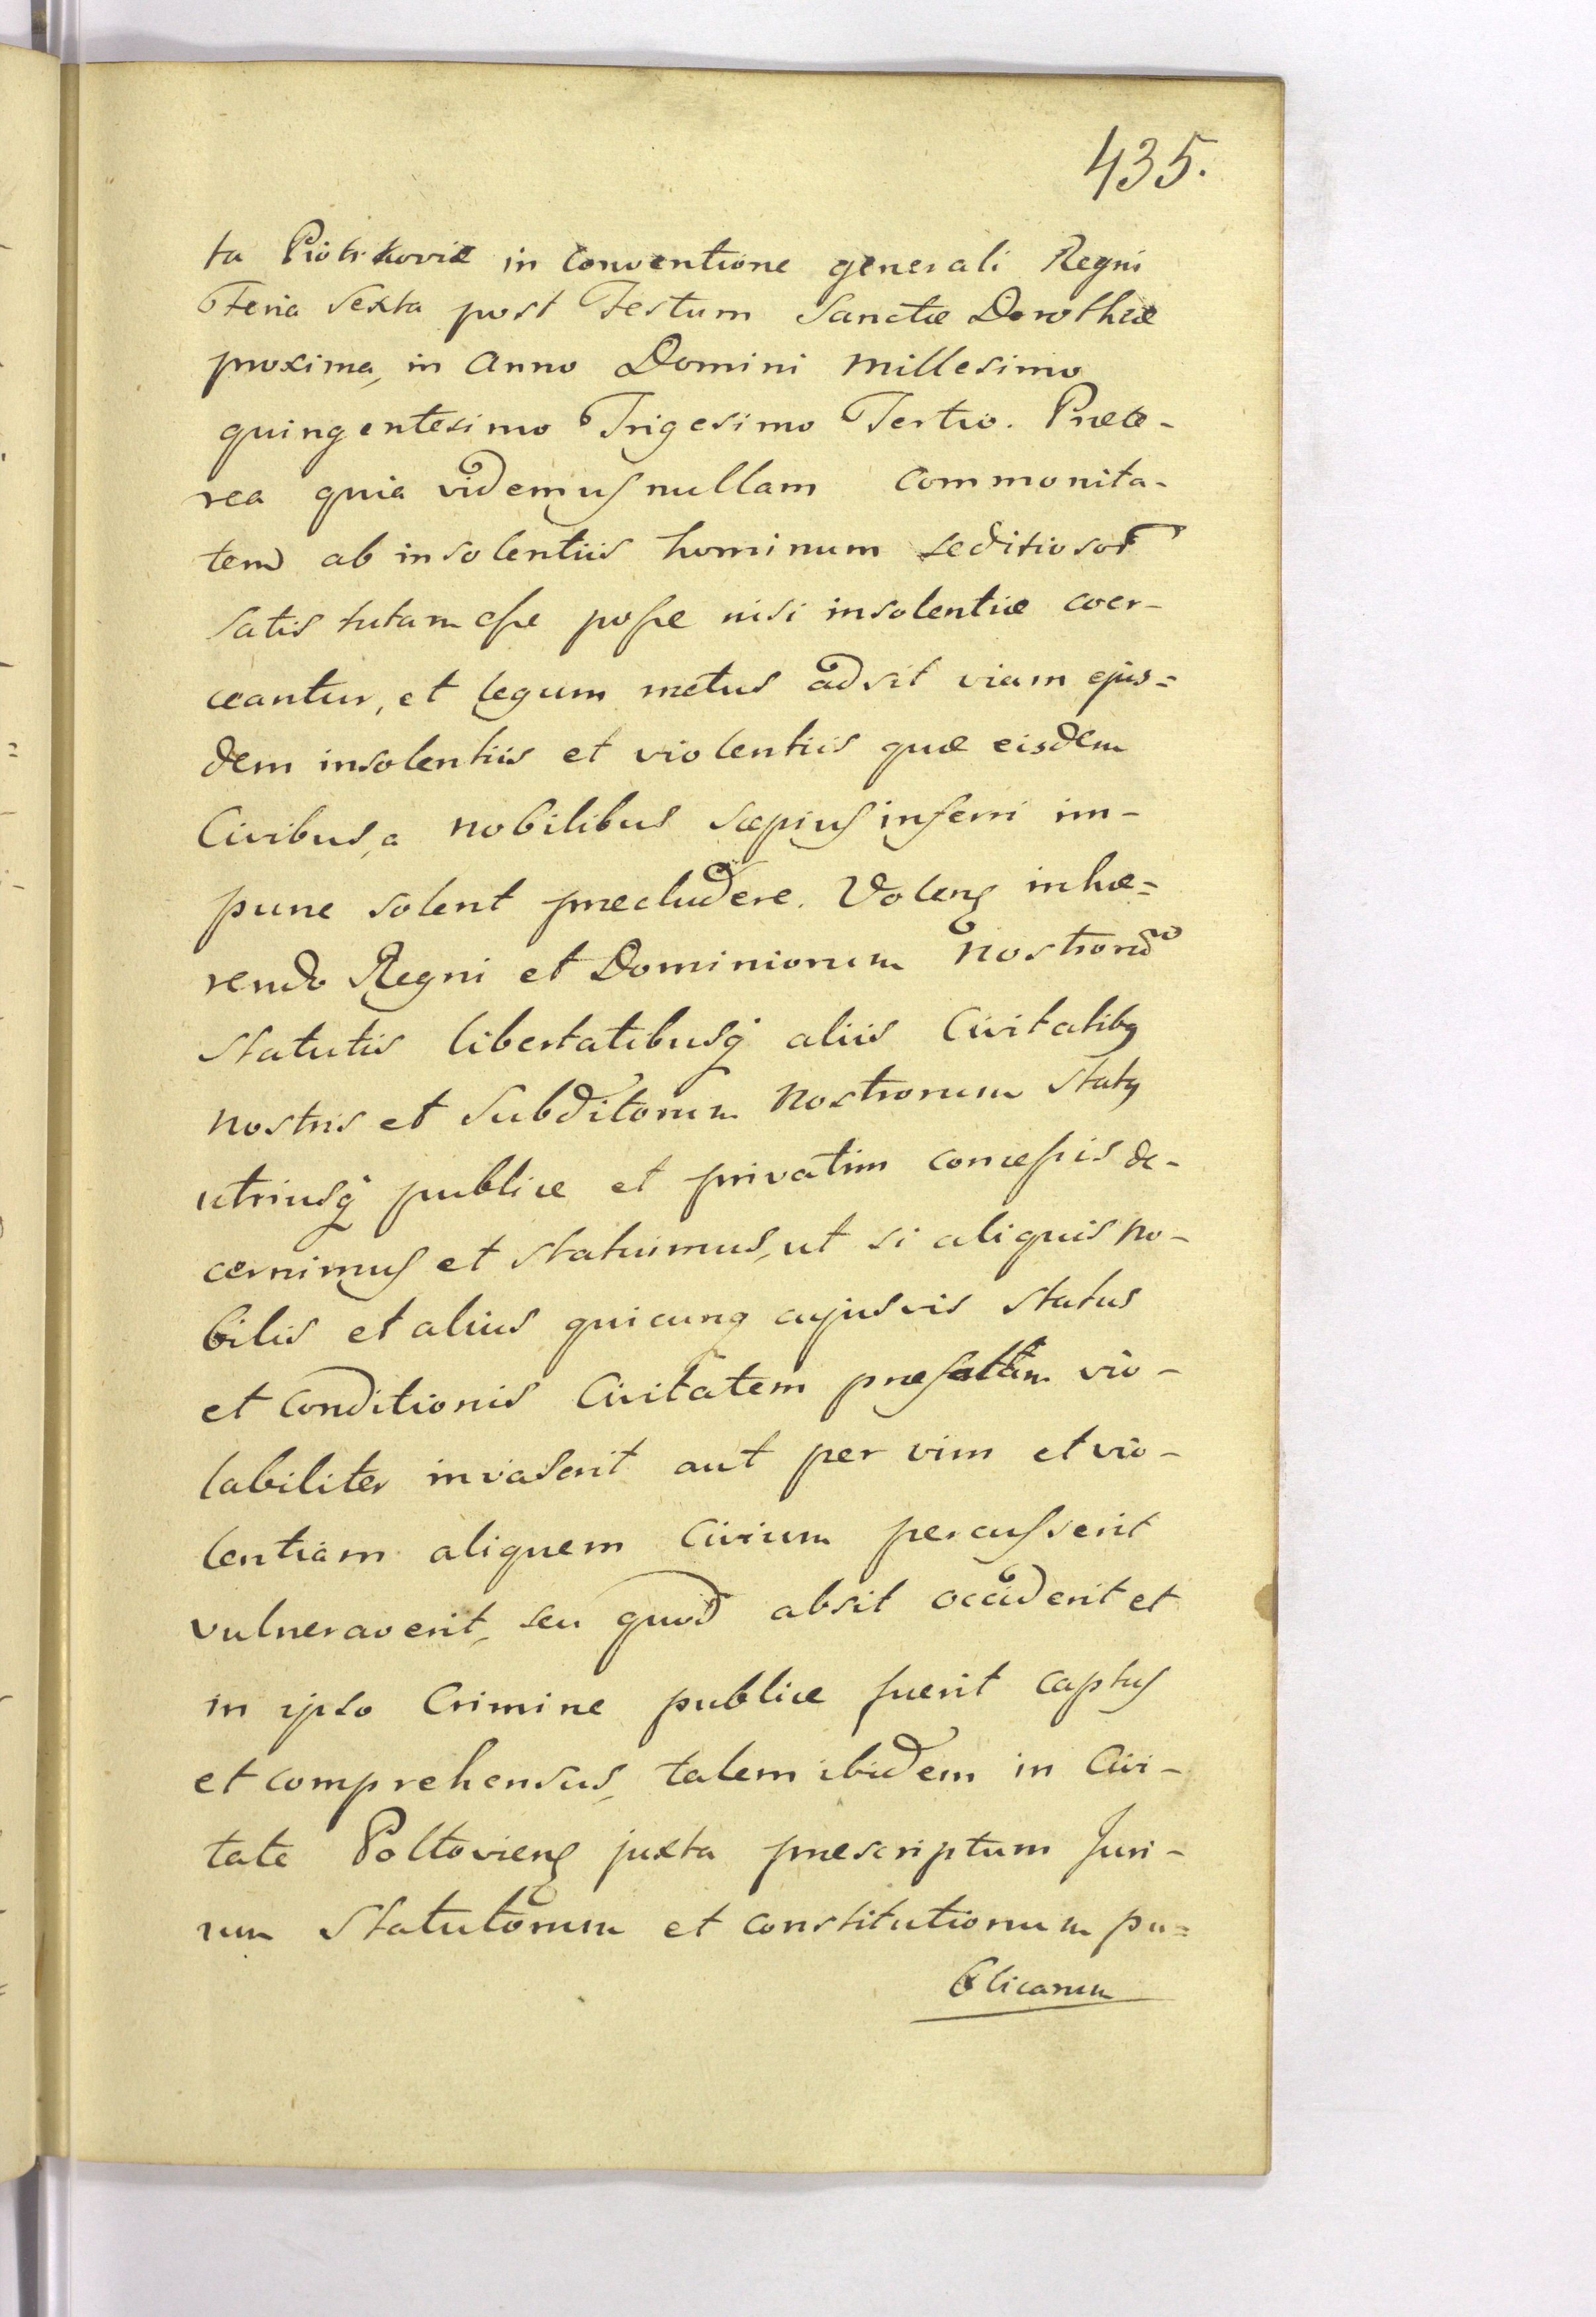 435.
ta Piotrkoviæ in Conventione generali Regni
Feria Sexta post Festum Sanctæ Dorotheæ
proxima, in Anno Domini Millesimo
quingentesimo Trigesimo Tertio. Præte-
rea quia videmus nullam Commonita-
tem ab insolentiis hominum seditiosor̃
satis tutam esse posse nisi insolentiæ coer-
ceantur, et legum metus adsit viam ejus=
dem insolentiis et violentiis quæ eisdem
Civibus, a nobilibus sæpius inferri im-
pune solent præcludere. Volens inhæ=
rendo Regni et Dominiorum nostrorũ
statutis libertatibusq aliis Civitatibq
nostris et Subditorum nostrorum statq
utriusq publice et privatim concessis de-
cernimus et statuimus, ut si aliquis no-
bilis et alius quicunq cujusvis status
et Conditionis Civitatem præfatam vio-
labiliter invaserit aut per vim et vio-
lentiam aliquem Civium percusserit
vulneraverit, seu quod absit occiderit et
in ipso Crimine publice fuerit captus
et comprehensus, talem ibidem in Civi-
tate Poltoviens juxta præscriptum Juri-
um Statutorum et constitutionum pu=
blicarum